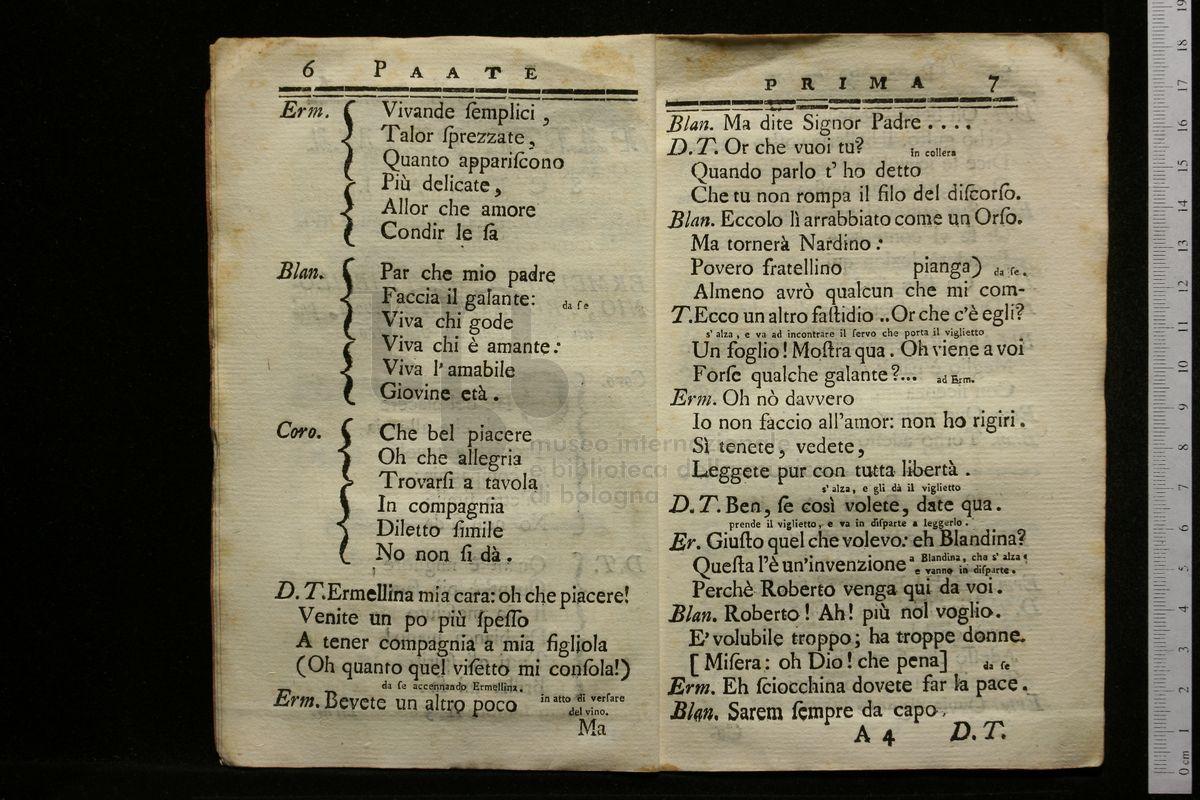 6 PAATE
Erm. Vivande ſemplici ,
Talor ſprezzate,
Quanto appariſcono
Più delicate,
Allor che amore
Condir le ſa
Blan. Par che mio padre
Faccia il galante: da ſe
Viva chi gode
Viva chi è amante:
Viva l'amabile
Giovine età .
Coro. Che bel piacere
Oh che allegria
Trovarſi a tavola
In compagnia
Diletto ſimile
No non ſi dà .
D. T. Ermellina mia cara: oh che piacere!
Venite un po più ſpeſſo
A tener compagnia a mia figliola
(Oh quanto quel viſetto mi conſola!)
da ſe accennando Ermellina.
Erm. Bevete un altro poco in atto di verſare
del vino.
Ma
PRIMA 7
Blan. Ma dite Signor Padre . . . .
D. T. Or che vuoi tu? in collera
Quando parlo t' ho detto
Che tu non rompa il filo del diſcorſo.
Blan. Eccolo lì arrabbiato come un Orſo.
Ma tornerà Nardino:
Povero fratellino pianga) da ſe.
Almeno avrò qualcun che mi com-
T. Ecco un altro faſtidio .. Or che c'è egli?
s' alza, e va ad incontrare il ſervo che porta il viglietto
Un foglio! Moſtra qua. Oh viene a voi
Forſe qualche galante?... ad Erm.
Erm. Oh nò davvero
Io non faccio all'amor: non ho rigiri.
Sì tenete, vedete,
Leggete pur con tutta libertà .
s' alza, e gli dà il viglietto
D. T. Ben, ſe così volete, date qua.
prende il viglietto, e va in diſparte a leggerlo.
Er. Giuſto quel che volevo: eh Blandina?
Queſta l'è un'invenzione a Blandina, che s' alza,
e vanno in diſparte.
Perchè Roberto venga qui da voi.
Blan. Roberto! Ah! più nol voglio.
E' volubile troppo; ha troppe donne.
[Miſera: oh Dio! che pena] da ſe
Erm. Eh ſciocchina dovete far la pace.
Blan. Sarem ſempre da capo.
A 4 D. T.
museo internazionale
e biblioteca della
di bologna